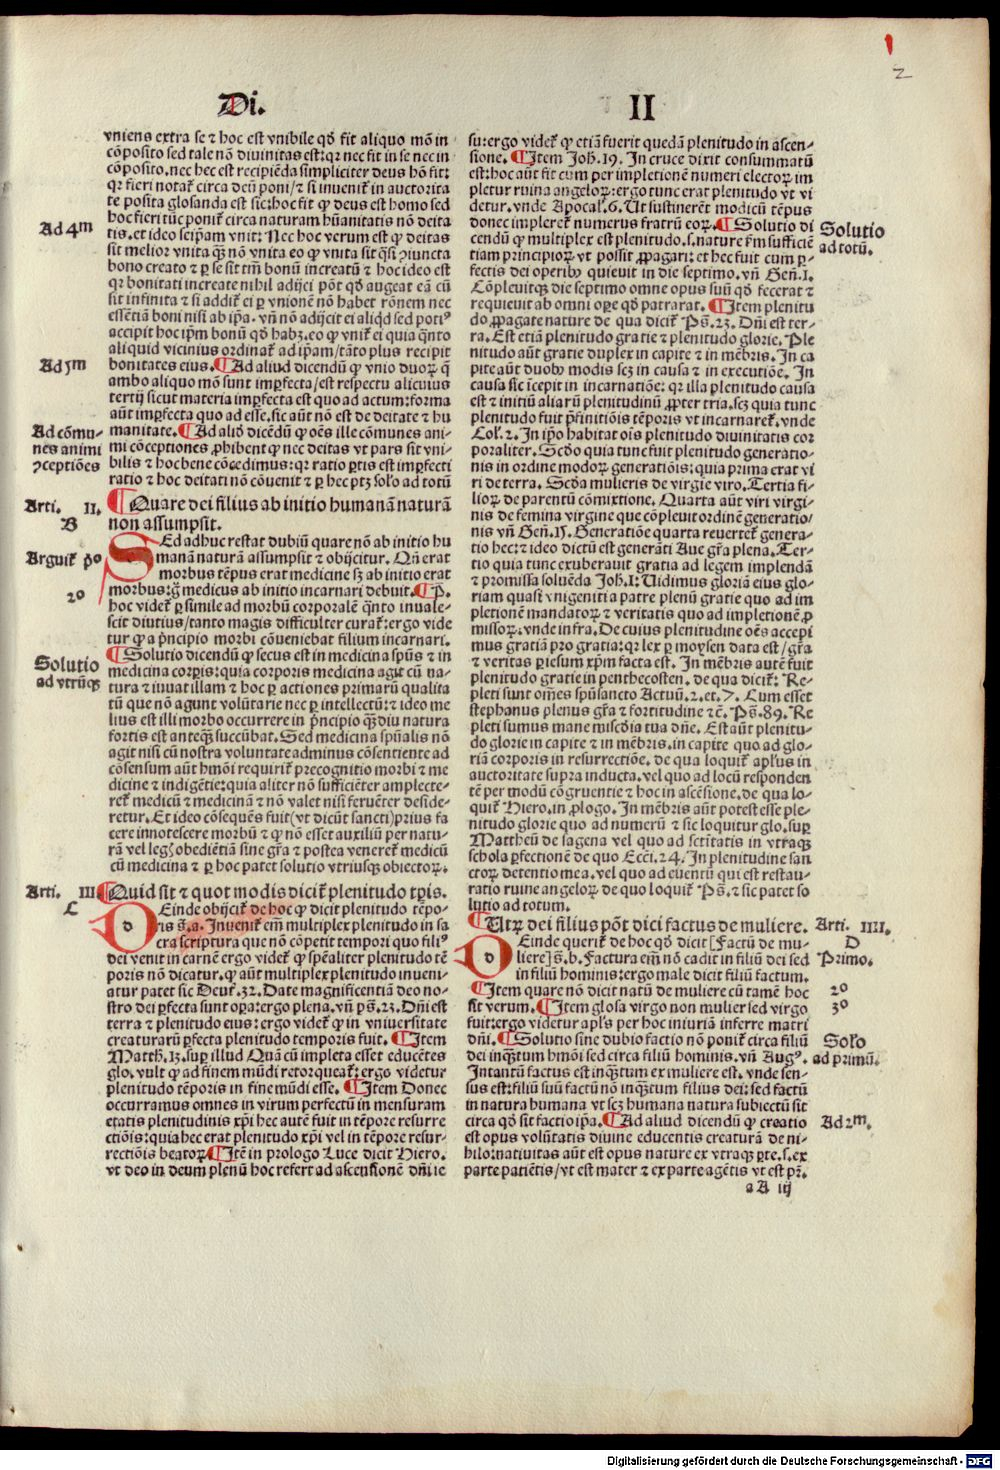 2
Di.
II
vniens extra se ⁊ hoc est vnibile qd̕ fit aliquo mō in
cōposito sed tale nō diuinitas est: qr nec fit in se nec in
cōposito. nec hec est recipiēda simpliciter deus hō fit:
qr fieri notat̕ circa deū poni/⁊ si inuenit̕ in auctorita
te posita glosanda est sic: hoc fit ꝙ deus est homo sed
hoc fieri tūc ponit̕ circa naturam hūanitatis nō deita
Ad 4m
tis. et ideo seip̄am vnit: Nec hoc verum est ꝙ deitas
sit melior vnita q̄ꝫ nō vnita eo ꝙ vnita sit q̄si ꝯiuncta
bono creato ⁊ ꝑ se sit tm̄ bonū increatū ⁊ hoc ideo est
qr bonitati increate nihil adijci pōt qd̕ augeat eā cū
sit infinita ⁊ si addit̕ ei ꝑ vnionē nō habet rōnem nec
essētiam boni nisi ab ip̄a. vn̄ nō adijcit ei aliqd̕ sed poti⁹
accipit hoc ip̄m bonū qd̕ habꝫ. eo ꝙ vnit̕ ei quia q̄nto
aliquid vicinius ordinat̕ ad ip̄am/tāto plus recipit
Ad 5m
bonitates eius. ¶ Ad aliud dicendū ꝙ vnio duoꝝ q̄
ambo aliquo mō sunt imꝑfecta/est respectu alicuius
tertij sicut materia imꝑfecta est quo ad actum: forma
aūt imꝑfecta quo ad esse. sic aūt nō est de deitate ⁊ hu
Ad cōmu-
nes animi
ꝯceptiōes
manitate. ¶ Ad aliō dicēdū ꝙ oēs ille cōmunes ani
mi cōceptiones ꝓhibent ꝙ nec deitas vt pars sit vni-
bilis ⁊ hoc bene cōcedimus: qr ratio ꝑtis est imꝑfecti
ratio ⁊ hoc deitati nō cōuenit ⁊ ꝑ hec ptꝫ solō ad totū
Arti. II.
B
¶ Quare dei filius ab initio humanā naturā
non assumpsit.
SEd adhuc restat dubiū quare nō ab initio hu
Arguit̕ p̄o
manā naturā assumpsit ⁊ obijcitur. Qn̄ erat
morbus tēpus erat medicine sꝫ ab initio erat
morbus: g̊ medicus ab initio incarnari debuit. ¶ P̄.
2o
hoc videt̕ ꝑ simile ad morbū corporalē q̄nto inuale-
scit diutius/tanto magis difficulter curat̕: ergo vide
tur ꝙ a p̄ncipio morbi cōueniebat filium incarnari.
Solutio
ad vtrūqꝫ
¶ Solutio dicendū ꝙ secus est in medicina sp̄us ⁊ in
medicina corꝑis: quia corporis medicina agit cū na-
tura ⁊ iuuat illam ⁊ hoc ꝑ actiones primarū qualita
tū que nō agunt volūtarie nec ꝑ intellectū: ⁊ ideo me
lius est illi morbo occurrere in p̄ncipio q̄ꝫdiu natura
fortis est anteqꝫ succūbat. Sed medicina sp̄ualis nō
agit nisi cū nostra voluntate ad minus cōsentiente ad
cōsensum aūt hmōi requirit̕ precognitio morbi ⁊ me
dicine ⁊ indigētie: quia aliter nō sufficiēter amplecte-
ret̕ medicū ⁊ medicinā ⁊ nō valet nisi feruēter deside-
retur. Et ideo cōsequēs fuit (vt dicūt sancti) prius fa
cere innotescere morbū ⁊ ꝙ nō esset auxiliū per natu-
rā vel legꝭ obediētiā sine gr̄a ⁊ postea veneret̕ medicū
cū medicina ⁊ ꝑ hoc patet solutio vtriusqꝫ obiectoꝝ.
Arti. III.
C
¶ Quid sit ⁊ quot modis dicit̕ plenitudo tp̄is.
DEinde obijcit̕ de hoc ꝙ dicit plenitudo tēpo-
ris g̊. a. Inuenit̕ em̄ multiplex plenitudo in sa
cra scriptura que nō cōpetit tempori quo fili⁹
dei venit in carnē ergo videt̕ ꝙ sp̄ealiter plenitudo tē
poris nō dicatur. ꝙ aūt multiplex plenitudo inueni-
atur patet sic Deut̕. 32. Date magnificentiā deo no-
stro dei ꝑfecta sunt oꝑa: ergo plena. vn̄ ps̄. 23. Dn̄i est
terra ⁊ plenitudo eius: ergo videt̕ ꝙ in vniuersitate
creaturarū ꝑfecta plenitudo temporis fuit. ¶ Item
Matth̕. 13. suꝑ illud Quā cū impleta esset educētes
glo. vult ꝙ ad finem mūdi retorqueat̕: ergo videtur
plenitudo tēporis in fine mūdi esse. ¶ Item Donec
occurramus omnes in virum perfectū in mensuram
etatis plenitudinis xp̄i hec autē fuit in tēpore resurre
ctiōis: quia hec erat plenitudo xp̄i vel in tēpore resur-
rectiōis beatoꝝ ¶ Itē in prologo Luce dicit Hiero.
vt deo in deum plenū hoc refert ad ascensionē dn̄i ie
su: ergo videt̕ ꝙ etiā fuerit quedā plenitudo in ascen-
sione. ¶ Item Joh̕. 19. In cruce dixit consummatū
est: hoc aūt fit cum per impletionē numeri electoꝝ im
pletur ruina angeloꝝ: ergo tunc erat plenitudo vt vi
detur. vnde Apocal̕. 6. Ut sustinerēt modicū tēpus
donec impleret̕ numerus fratrū eoꝝ. ¶ Solutio di
Solutio
ad totū.
cendū ꝙ multiplex est plenitudo. s. nature fm̄ sufficiē
tiam principioꝝ vt possit ꝓpagari: et hec fuit cum ꝑ-
fectis dei operibꝰ quieuit in die septimo. vn̄ Gen̄. 1.
Cōpleuitqꝫ die septimo omne opus suū qd̕ fecerat ⁊
requieuit ab omni oꝑe qd̕ patrarat. ¶ Item plenitu
do ꝓpagate nature de qua dicit̕ Ps̄. 23. Dn̄i est ter-
ra. Est etiā plenitudo gratie ⁊ plenitudo glorie. Ple
nitudo aūt gratie duplex in capite ⁊ in mēbris. In ca
pite aūt duobꝰ modis scꝫ in causa ⁊ in executiōe. In
causa sic īcepit in incarnatiōe: qr illa plenitudo causa
est ⁊ initiū aliarū plenitudinū ꝓpter tria. scꝫ quia tunc
plenitudo fuit p̄finitiōis tēporis vt incarnaret̕. vnde
Col̕. 2. In ip̄o habitat oīs plenitudo diuinitatis cor
poraliter. Scd̕o quia tunc fuit plenitudo generatio-
nis in ordine modoꝝ generatiōis: quia prima erat vi
ri de terra. Scd̕a mulieris de virgie viro. Tertia fi-
lioꝝ de parentū cōmixtione. Quarta aūt viri virgi-
nis de femina virgine que cōpleuit ordinē generatio-
nis vn̄ Gen̄. 15. Generatiōe quarta reuertet̕ genera-
tio hec: ⁊ ideo dictū est generāti Aue gr̄a plena. Ter-
tio quia tunc exuberauit gratia ad legem implendā
⁊ promissa soluēda Joh̕. 1: Uidimus gloriā eius glo-
riam quasi vnigeniti a patre plenū gratie quo ad im
pletionē mandatoꝝ ⁊ veritatis quo ad impletionē ꝓ
missoꝝ: vnde infra. De cuius plenitudine oēs accepi
mus gratiā pro gratia: qr lex ꝑ moysen data est/gr̄a
⁊ veritas ꝑ iesum xp̄m facta est. In mēbris autē fuit
plenitudo gratie in penthecosten. de qua dicit̕: Re-
pleti sunt om̄es sp̄usancto Actuū. 2. et. 7. Cum esset
stephanus plenus gr̄a ⁊ fortitudine ⁊c̄. Ps̄. 89. Re
pleti sumus mane mis̄cdia tua dn̄e. Est aūt plenitu-
do glorie in capite ⁊ in mēbris. in capite quo ad glo-
riā corporis in resurrectiōe. de qua loquit̕ apl̕us in
auctoritate supra inducta. vel quo ad locū responden
tē per modū cōgruentie ⁊ hoc in ascēsione. de qua lo-
quit̕ Hiero. in ꝓlogo. In mēbris aūt potest esse ple-
nitudo glorie quo ad numerū ⁊ sic loquitur glo. suꝑ
Mattheū de sagena vel quo ad sc̄titatis in vtraqꝫ
schola ꝑfectionē de quo Ecc̄i. 24. In plenitudine san
ctoꝝ detentio mea. vel quo ad euentū qui est restau-
ratio ruine angeloꝝ de quo loquit̕ Ps̄. ⁊ sic patet so
lutio ad totum.
¶ Utꝝ dei filius pōt dici factus de muliere.
Arti. IIII.
D
DEinde querit̕ de hoc qd̕ dicit [Factū de mu-
Primo.
liere] g̊. b. Factura em̄ nō cadit in filiū dei sed
in filiū hominis: ergo male dicit filiū factum.
2o
¶ Item quare nō dicit natū de muliere cū tamē hoc
3o
sit verum. ¶ Item glosa virgo non mulier sed virgo
fuit: ergo videtur apl̕s per hoc iniuriā inferre matri
Solo
ad primū.
dn̄i. ¶ Solutio sine dubio factio nō ponit̕ circa filiū
dei inqꝫtum hmōi sed circa filiū hominis. vn̄ Aug⁹.
Intantū factus est inqꝫtum ex muliere est. vnde sen-
sus est: filiū suū factū nō inqꝫtum filius dei: sed factū
in natura humana vt scꝫ humana natura subiectū sit
Ad 2m.
circa qd̕ sit factio ip̄a. ¶ Ad aliud dicendū ꝙ creatio
est opus volūtatis diuine educentis creaturā de ni-
hilo: natiuitas aūt est opus nature ex vtraqꝫ ꝑte. s. ex
parte patiētis/vt est mater ⁊ ex parte agētis vt est pr̄.
aA iij
Digitalisierung gefördert durch die Deutsche Forschungsgemeinschaft - DFG